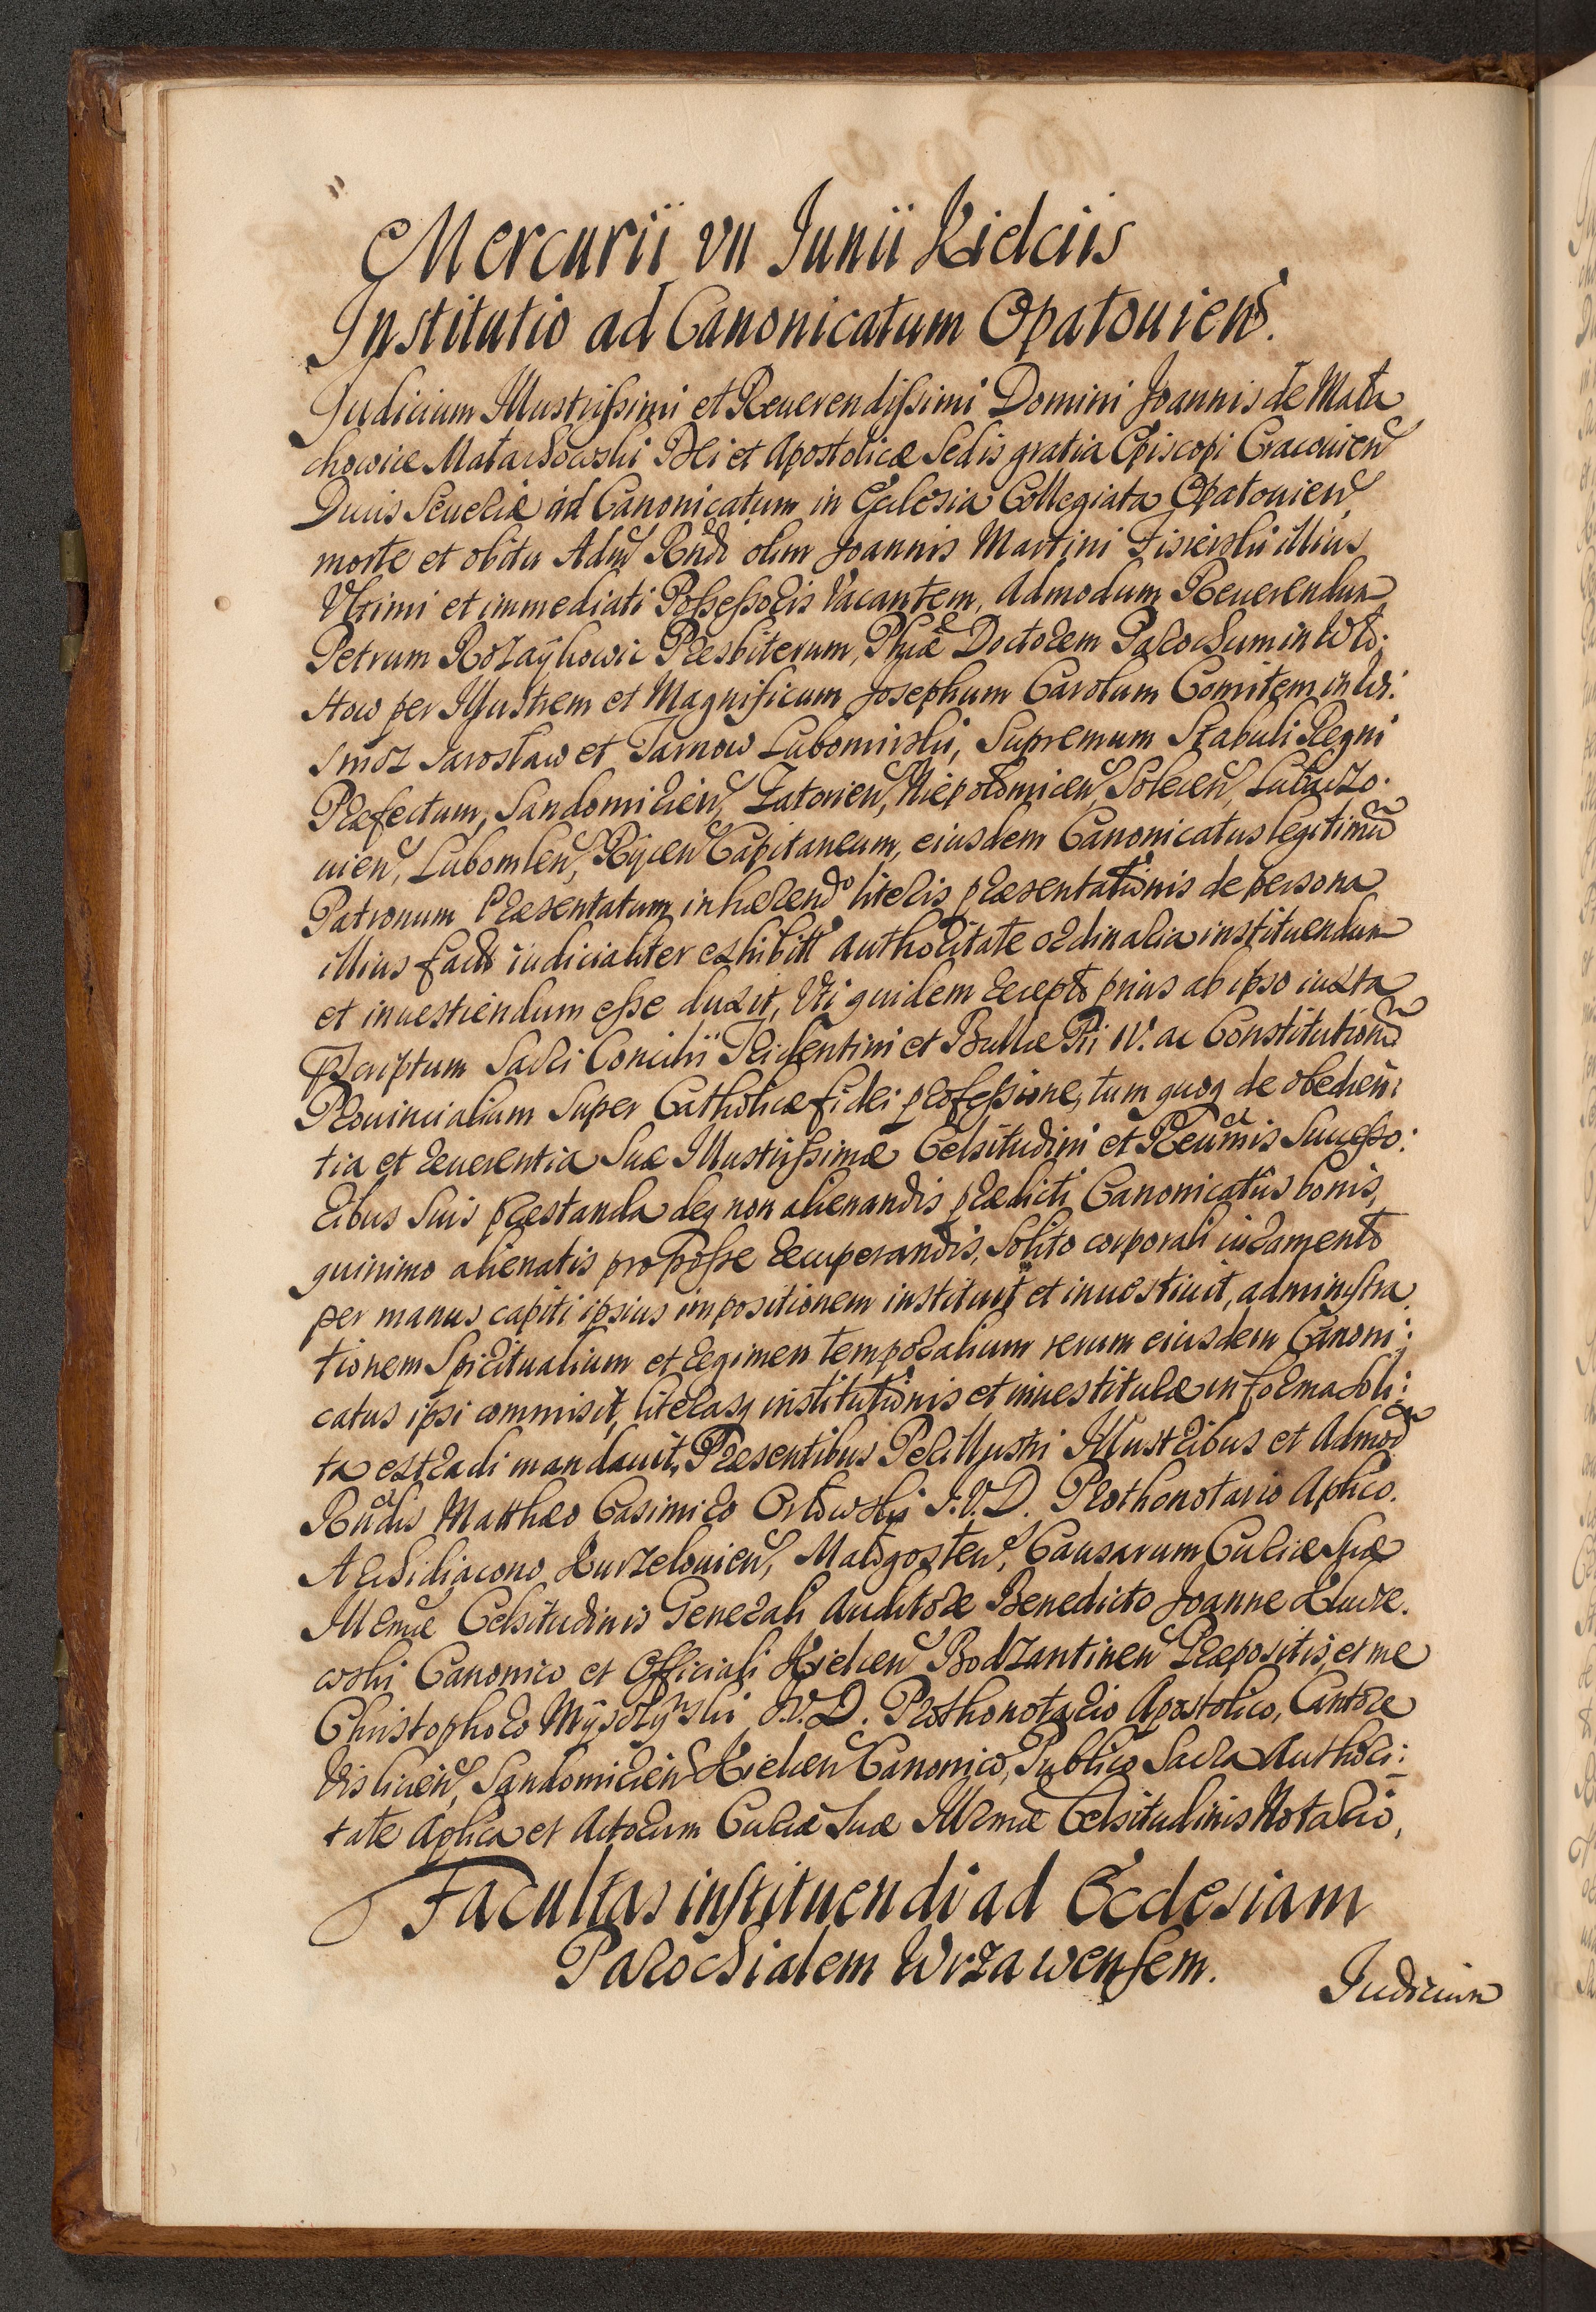 Mercurii VII Junii Kielciis
Institutio ad Canonicatum Opatouien̄.
Judicium Illustrissimi et Reuerendissimi Domini Joannis de Mała
chowice Małachowski Dei et Apostolicæ Sedis gratia Episcopi Cracouien̄
Ducis Seueriæ ad Canonicatum in Ecclesia Collegiata Opatouien̄,
morte et obitu Adm̄ Rn̄di olim Joannis Martini Fisierski illius
Vltimi et immediati Possessoris Vacantem, Admodum Reuerendum
Petrum Rozayhowic Presbiterum, Phiæ Doctorem Parochum in
stow per Illustrem et Magnificum Josephum Carolum Comitem in Wi:
snicz Jarosław et Tarnow Lubomirski, Supremum Stabuli Regni
Præfectum, Sandomirien̄, Zatorien̄, Niepołomicen̄, Solecen̄, Lubaczo:
uien̄, Lubomlen̄, Rycen̄ Capitaneum, eiusdem Canonicatus legitimū
Patronum Præsentatum, inhærendo literis præsentationis de persona
illius facto iudicialiter exhibitt authoritate ordinaria instituendum
et inuestiendum esse duxit, Vti quidem recepto prius ab ipso iuxta
Præscriptum Sacri Concilii Tridentini et Bullæ Pii IV. ac Constitutionū
Prouincialium super Catholicæ fidei professione, tum quoq de obedien:
tia et reuerentia Suæ Illustrissimæ Celsitudini et Reud̄mis Successo:
ribus Suis præstanda deq non alienandis prædicti Canonicatûs bonis,
quinimo alienatis pro posse recuperandis, solito corporali iuramento
per manus capiti ipsius impositionem instituit et inuestiuit, administra
tionem Spiritualium et regimen temporalium rerum eiusdem Canoni:
catus ipsi commisit, literasq institutionis et inuestituræ in forma soli:
ta extradi mandauit, Præsentibus Perillustri Illustribus et Admod̄
Rn̄dis Matthæo Casimiro Orłowski J.V.D. Prothonotario Aplico.
Archidiacono Kurzelouien̄, Małogosten̄, Causarum Curiæ Suæ
Illemæ Celsitudinis Generali Auditore Benedicto Joanne
wski Canonico et Officiali Kielcen̄ Bodzantinen̄ Præpositis, et me
Christophoro J.V.D. Prothonotario Apostolico, Cantore
Vislicien̄, Sandomirien̄ Kielcen̄ Canonico, Publico Sacra Authori:
tate Aplica et Actorum Curiæ Suæ Illemæ Celsitudinis Notario,
Facultas instituendi ad Ecclesiam
Parochialem Wrzawensem.
Judicium